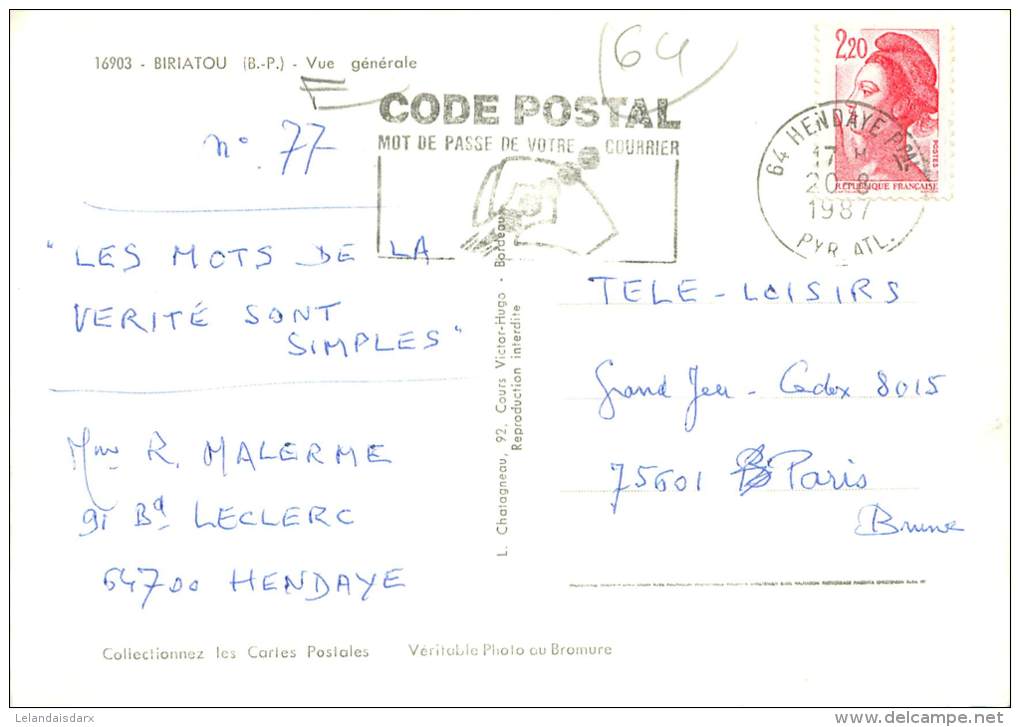 16903 - BIRIATOU (B.-P.) - Vue générale
64
2,20
POSTES
REPUBLIQUE FRANÇAISE
CODE POSTAL
MOT DE PASSE DE VOTRE COURRIER
64 HENDAYE
17 H
20 - 8
1987
PYR. ATL.
n° 77
"LES MOTS DE LA
VERITÉ SONT
SIMPLES"
Mme R. MALERME
91 Bd LECLERC
64700 HENDAYE
L. Chatagneau, 92, Cours Victor-Hugo - Bordeaux
Reproduction interdite
TELE - LOISIRS
Grand Jeu - Cedex 8015
75601 Paris
Brune
Collectionnez les Cartes Postales Véritable Photo au Bromure
Lelandaisdarx
www.delcampe.net